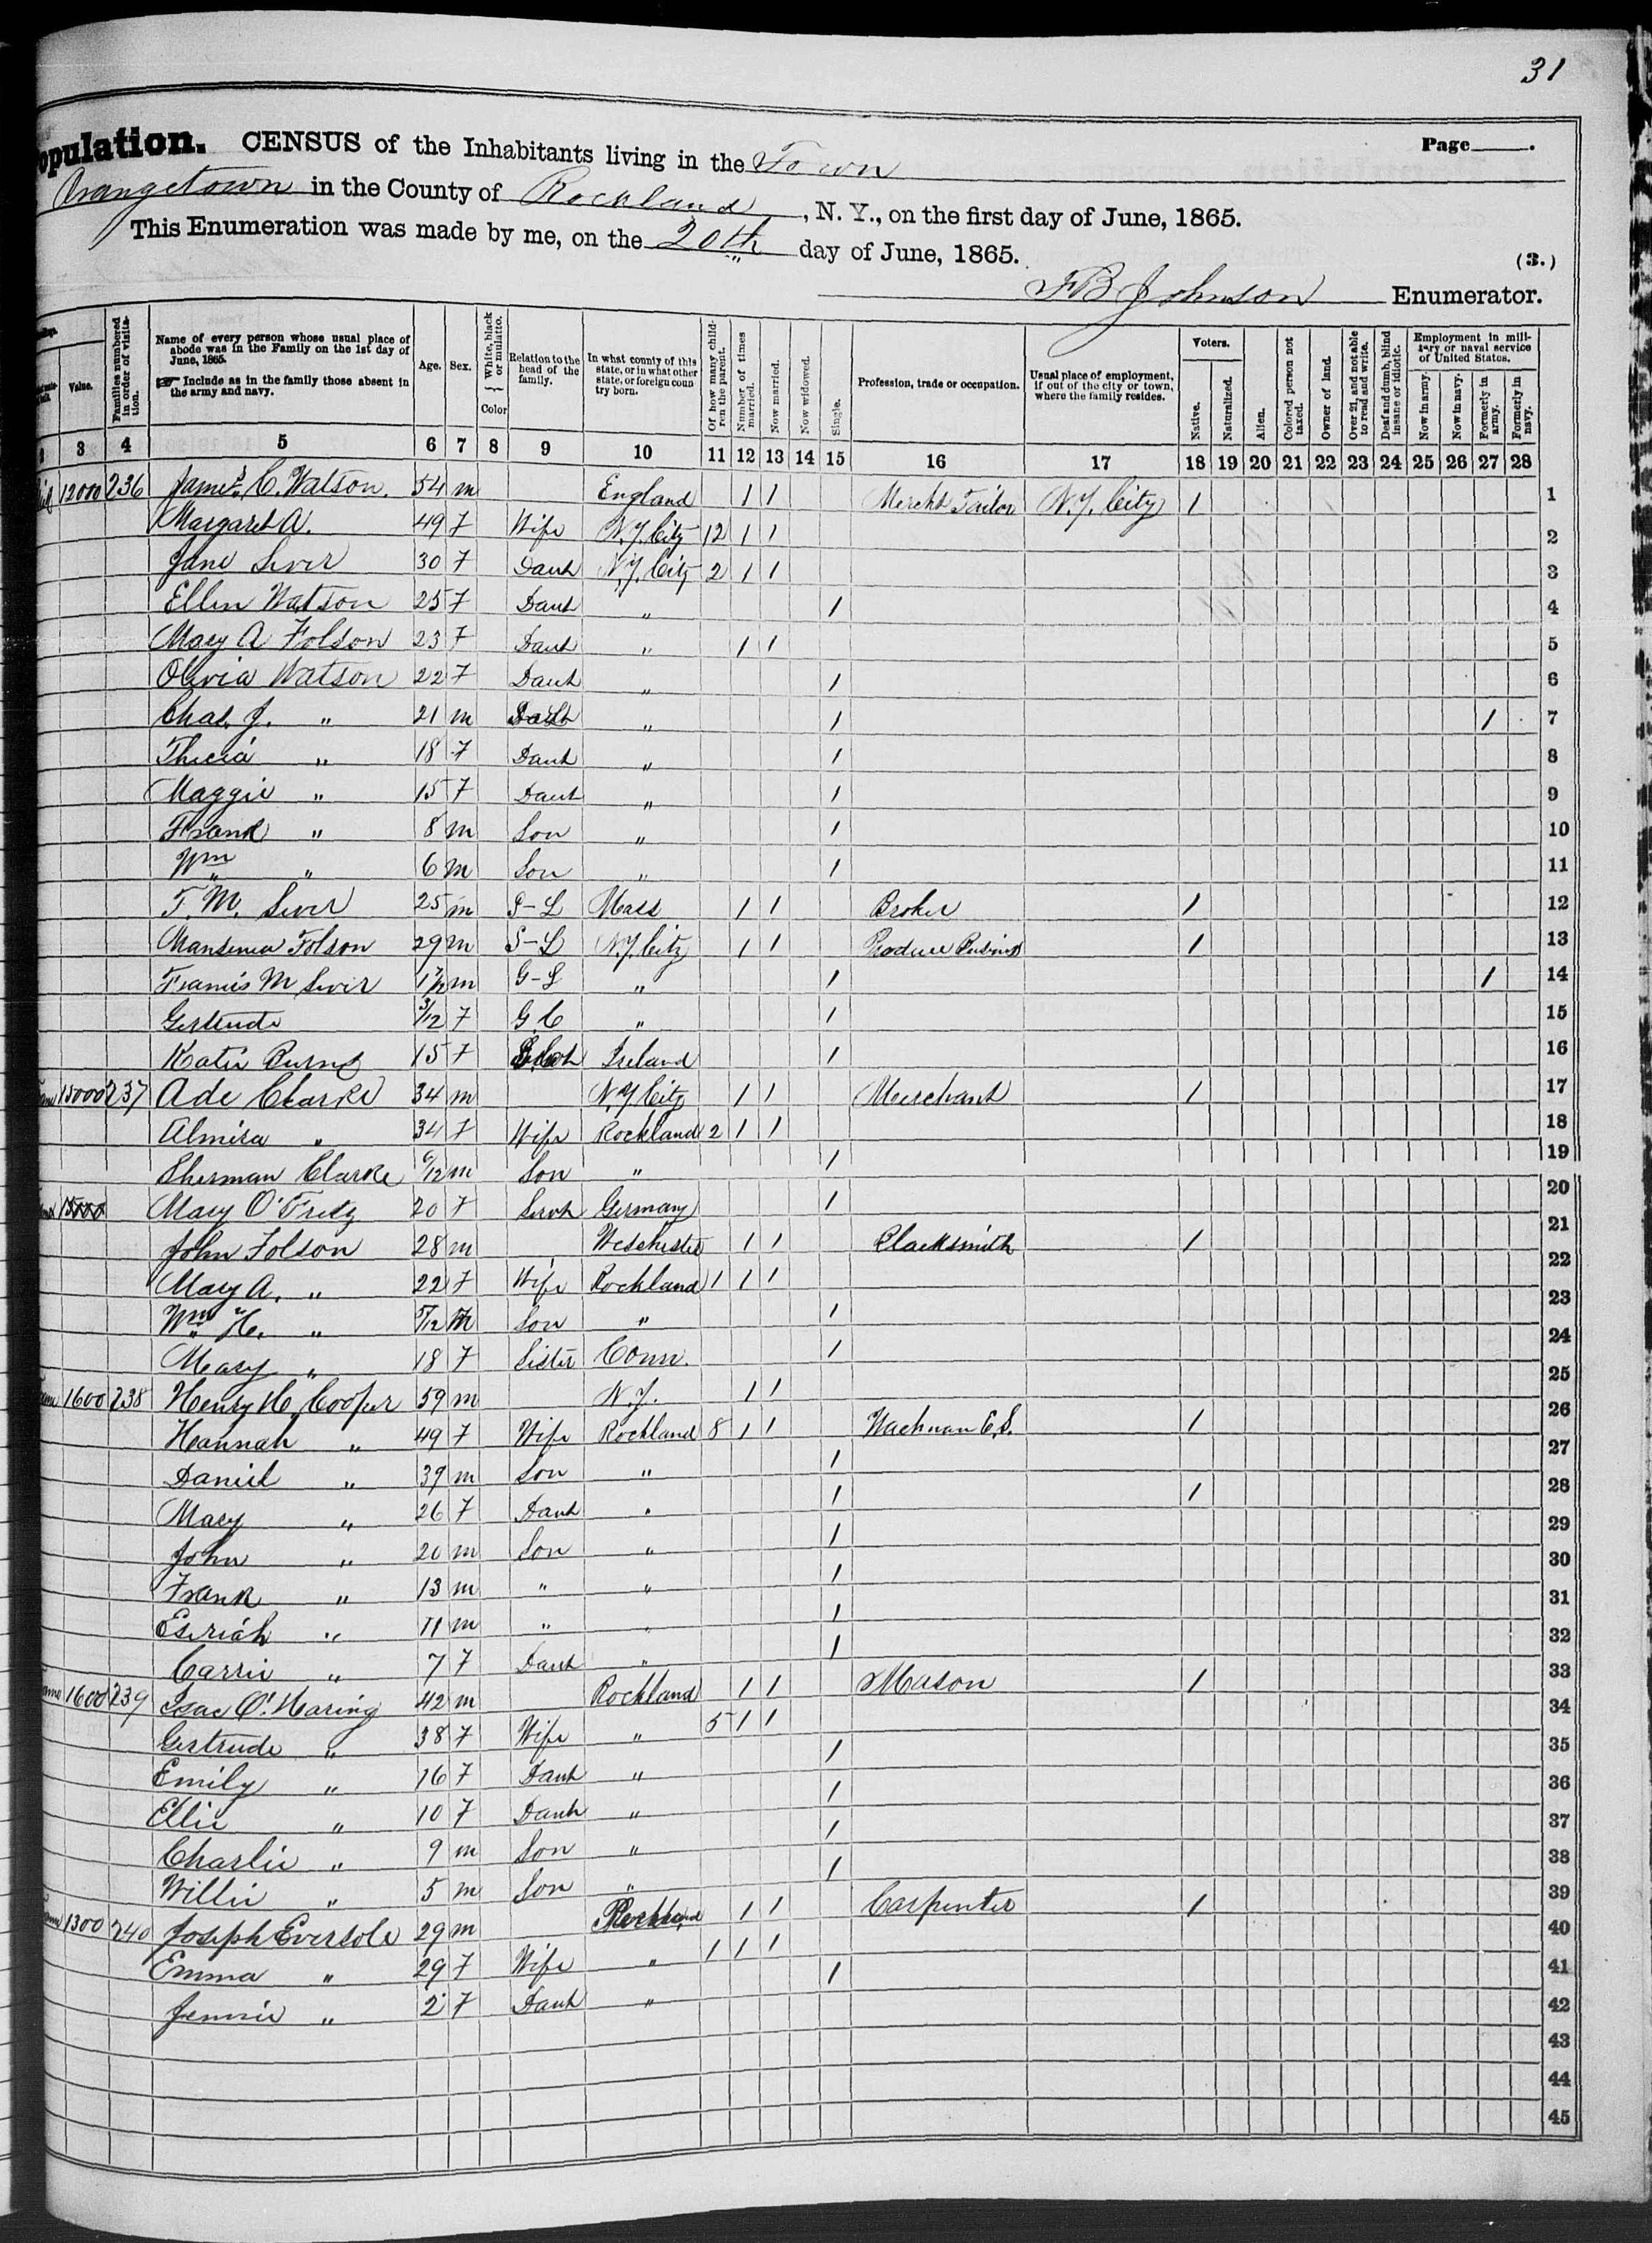 31
opulation. CENSUS of the Inhabitants living in the Town Page
Orangetown in the County of Rockland, N. Y., on the first day of June, 1865.
This Enumeration was made by me, on the 20th day of June, 1865. (3.)
F B Johnson Enumerator.
Value. Families numbered in order of visitation. Name of every person whose usual place of abode was in the Family on the 1st day of June, 1865. Include as in the family those absent in the army and navy. Age. Sex. White, black or mulatto. Color Relation to the head of the family. In what county of this state, or in what other state, or foreign coun try born. Of how many children the parent. Number of times married. Now married. Now widowed. Single. Profession, trade or occupation. Usual place of employment, if out of the city or town, where the family resides. Voters. Native. Naturalized. Alien. Colored person not taxed. Owner of land. Over 21, and not able to read and write. Deaf and dumb, blind insane or idiotic. Employment in military or naval service of United States. Now in army. Now in navy. Formerly in army. Formerly in navy.
3 4 5 6 7 8 9 10 11 12 13 14 15 16 17 18 19 20 21 22 23 24 25 26 27 28
12000 236 James C. Watson. 54 m England 1 1 Mercht Tailor N.Y. City 1 1
Margaret A. 49 F Wife N.Y. City 12 1 1 2
Jane 30 F Daut N.Y. City 2 1 1 3
Ellen Watson 25 F Daut " 1 4
Mary A Folson 23 F Daut " 1 1 5
Olivia Watson 22 F Daut " 1 6
Chas. J. " 21 m " 1 1 7
" 18 F Daut " 1 8
Maggie " 15 F Daut " 1 9
Frank " 8 m Son " 1 10
Wm " 6 m Son " 1 11
T. M. 25 m S-L Mass 1 1 Broker 1 12
Folson 29 m S-L N.Y. City 1 1 Produce Business 1 13
Francis M m G-S " 1 1 14
Gertrude 3/12 F G.C " 1 15
Katie Burns 15 F Ireland 1 16
15000 237 Ade Clarke 34 m N.Y. City 1 1 Merchant 1 17
Almira " 34 F Wife Rockland 2 1 1 18
Sherman Clarke 6/12 m Son " 1 19
Mary O'Fretz 20 F Servt Germany 1 20
John Folson 28 m Weschester 1 1 Blacksmith 1 21
Mary A. " 22 F Wife Rockland 1 1 1 22
Wm H. " 5/12 M Son " 1 23
Mary " 18 F Sister Conn. 1 24
1600 238 Henry H. Cooper 59 m N.Y. 1 1 25
Hannah " 49 F Wife Rockland 8 1 1 Wachman 1 26
Daniel " 39 m Son " 1 27
Mary " 26 F Daut " 1 1 28
John " 20 m Son " 1 29
Frank " 13 m " " 1 30
" 11 m " " 1 31
Carrie " 7 F Daut " 1 32
1600 239 Isac O. Haring 42 m Rockland 1 1 Mason 1 33
Gertrude " 38 F Wife " 5 1 1 34
Emily " 16 F Daut " 1 35
Ellie " 10 F Daut " 1 36
Charlie " 9 m Son " 1 37
Willie " 5 m Son " 1 38
1300 240 Joseph Eversole 29 m Rockland 1 1 Carpenter 1 39
Emma " 29 F Wife " 1 1 1 40
Jennie " 2 F Daut " 1 41
42
43
44
45